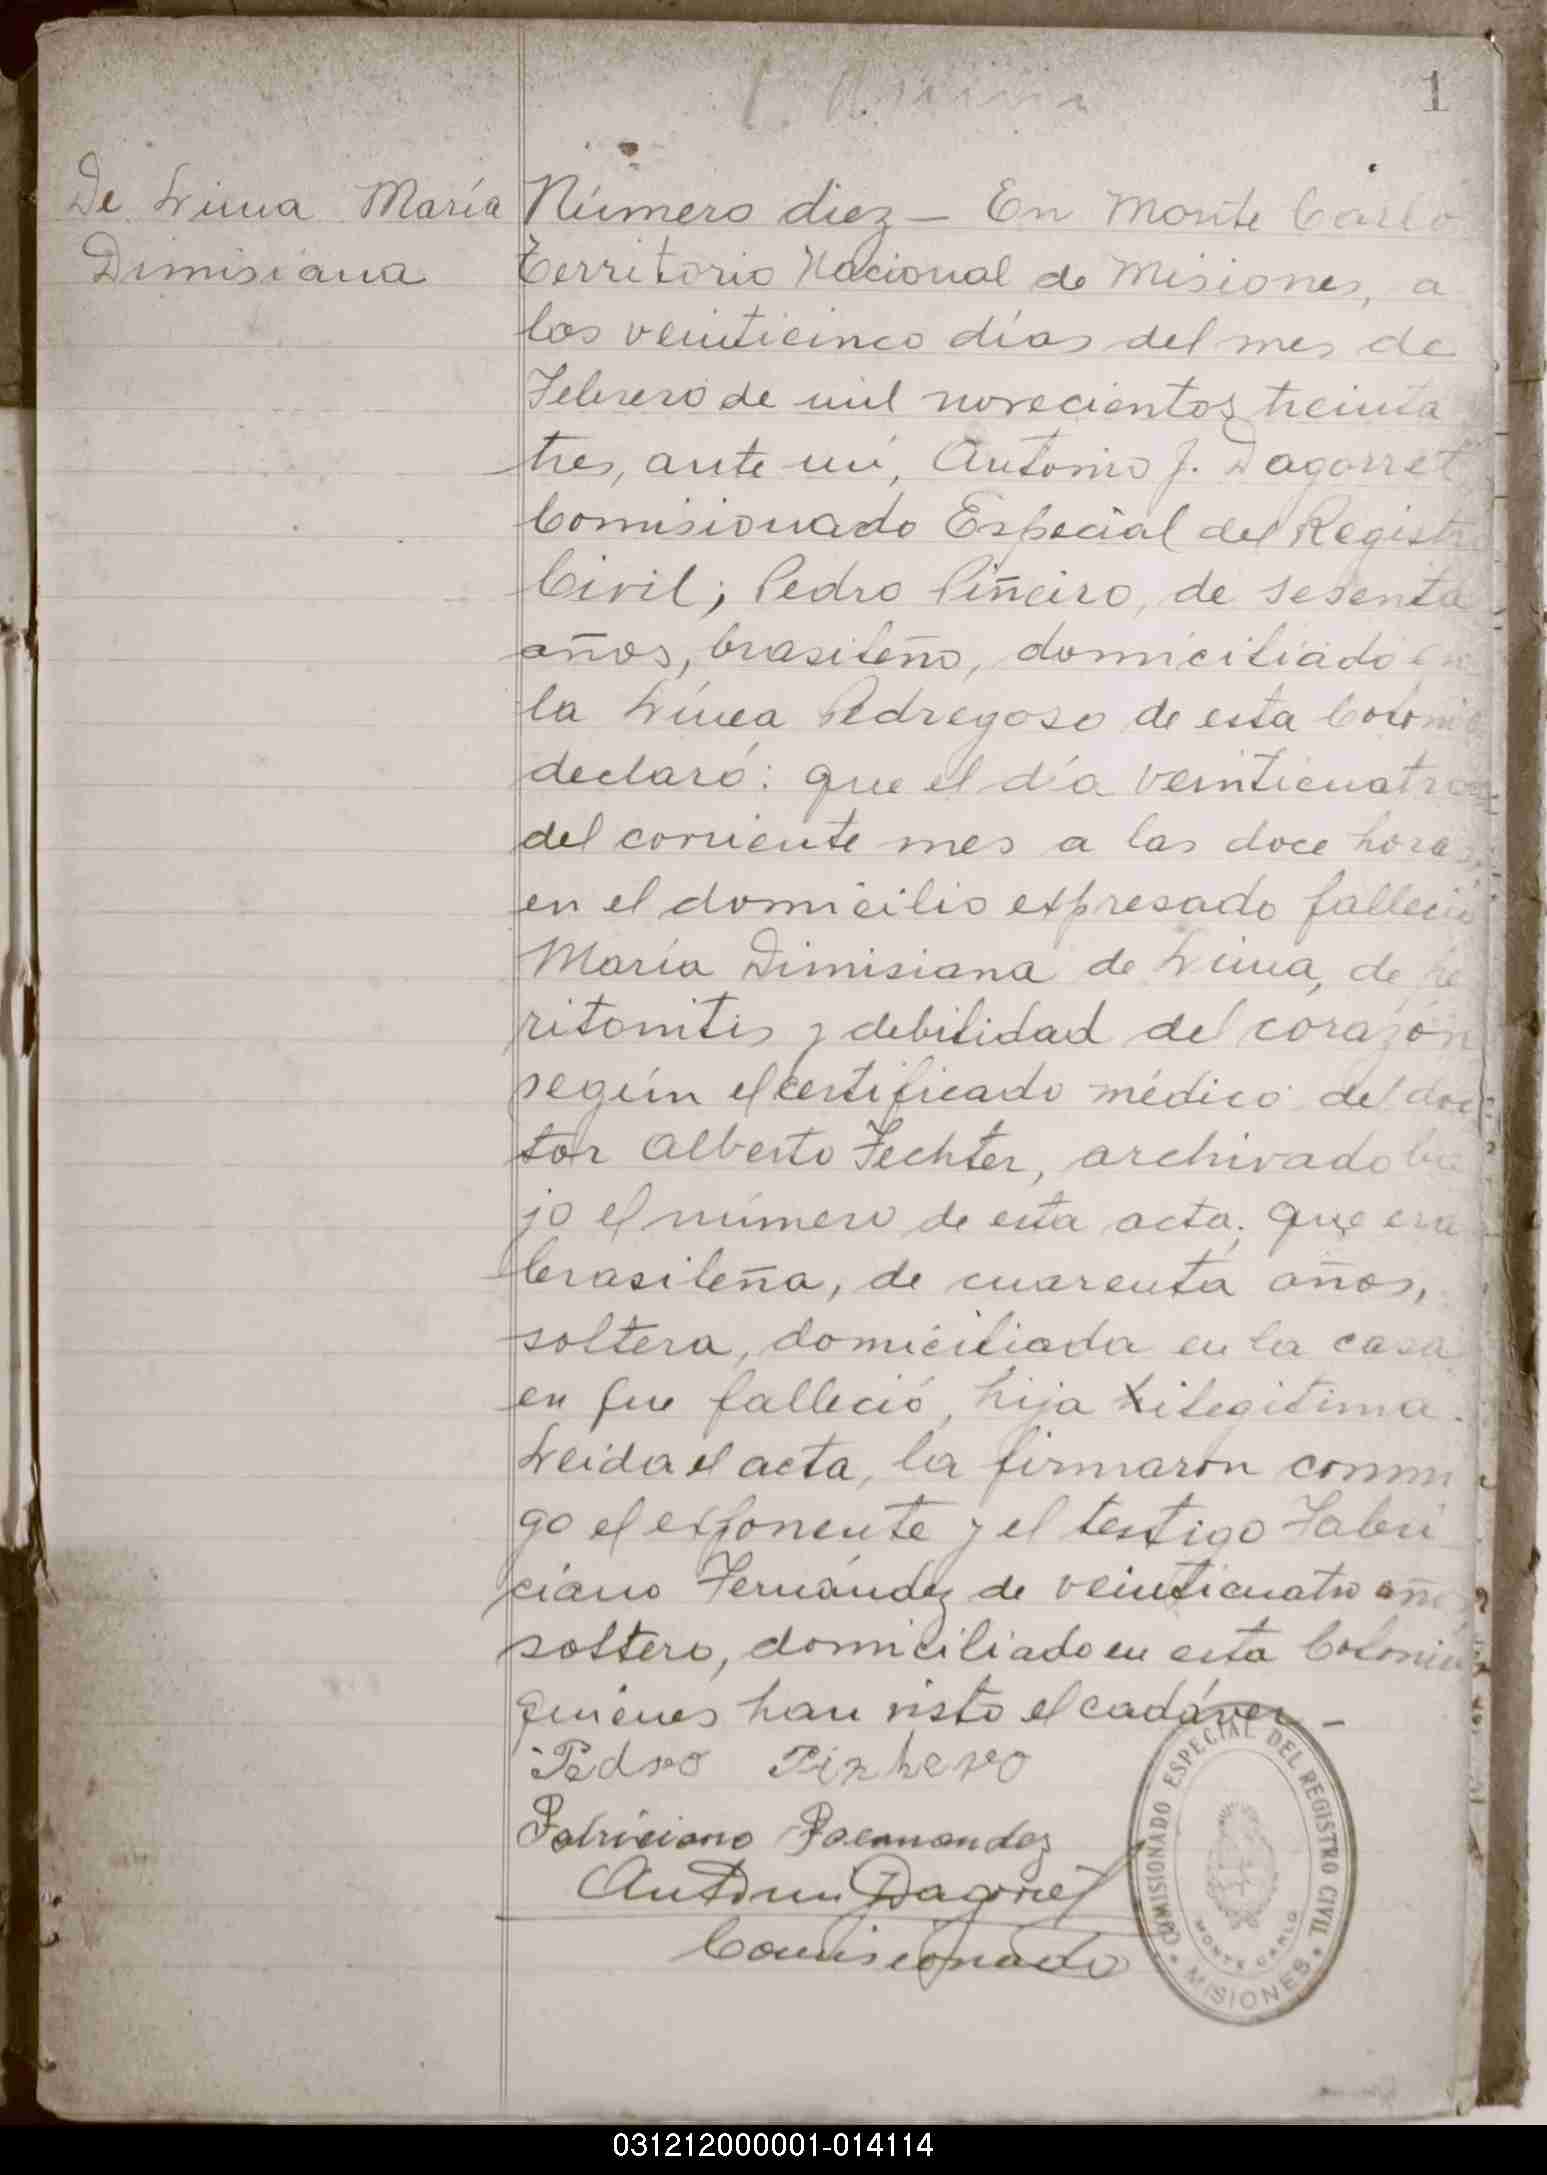 1
De Lima María
Dimisiana
Número diez — En Monte Carlo
Territorio Nacional de Misiones, a
los veinticinco días del mes de
Febrero de mil novecientos treinta
tres, ante mí, Antonio J. Dagorret
Comisionado Especial del Registro
Civil; Pedro Piñeiro, de sesenta
años, brasileño, domiciliado en
la Línea Pedregoso de esta Colonia
declaró: que el día veinticuatro
del corriente mes a las doce horas
en el domicilio expresado falleció
María Dimisiana de Lima, de pe
ritonitis y debilidad del corazón
según el certificado médico del doc
tor Alberto Fechter, archivado ba
jo el número de esta acta; que era
brasileña, de cuarenta años,
soltera, domiciliada en la casa
en que falleció, hija ilegitima.
Leida el acta, la firmaron conmi
go el exponente y el testigo Fabri
ciano Fernández de veinticuatro años
soltero, domiciliado en esta Colonia
quienes han visto el cadáver —
Pedro Pinhero
Fabriciano Fernandez
Antonio Dagorret
Comisionado
COMISIONADO ESPECIAL DEL REGISTRO CIVIL
MONTE CARLO
• MISIONES •
031212000001-014114